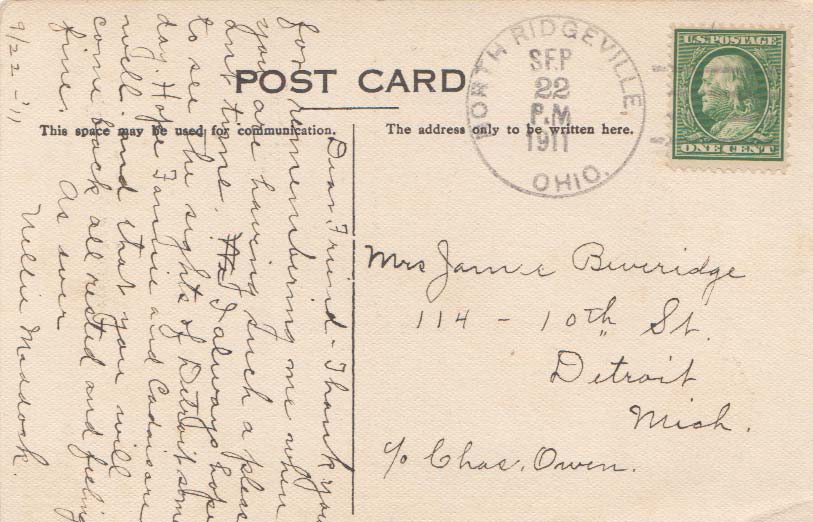 POST CARD
This space may be used for communication.
The address only to be written here.
NORTH RIDGEVILLE
SEP
22
P.M
1911
OHIO.
U.S. POSTAGE
ONE CENT
Dear Friend - Thank you
for remembering me when
you are having such a pleas
ant time. I always hope
to see the sights of Detroit some
day. Hope Fannie and are
well and that you will
come back all rested and feeling
fine.
As ever
Nellie Maddock.
9/22-'11
Mrs Jamie Beveridge
114 - 10th St.
Detroit
Mich.
c/o Chas. Owen.